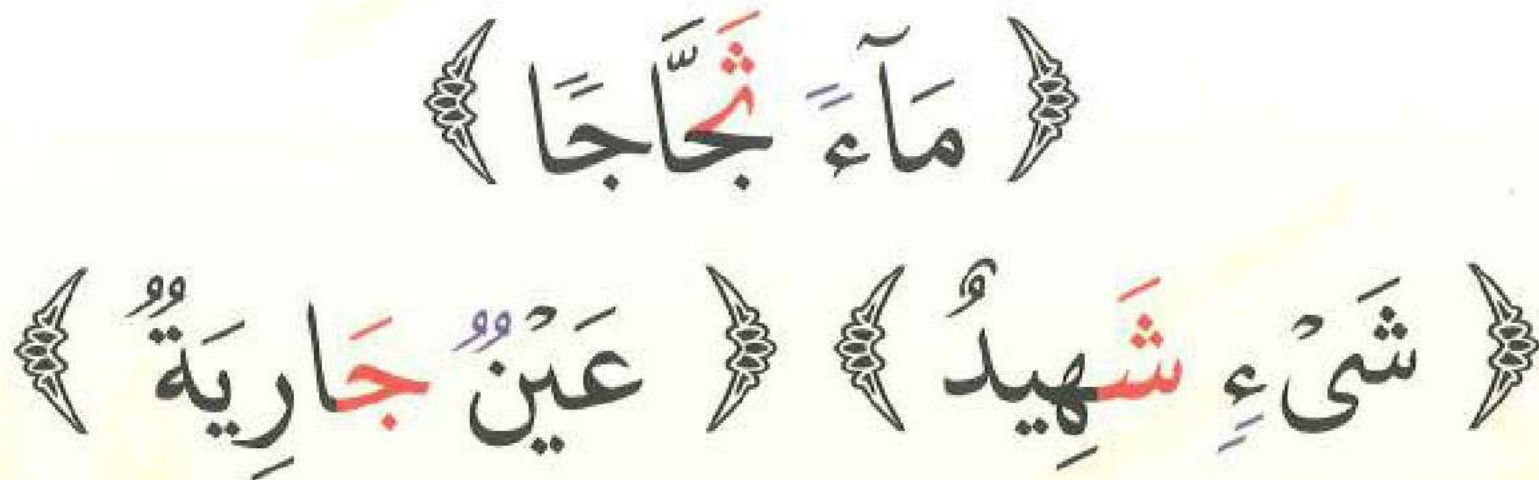 ﴿ مَآءً ثَجَّاجًا ﴾
﴿ شَىْءٍ شَهِيدٌ ﴾ ﴿ عَيْنٌ جَارِيَةٌ ﴾